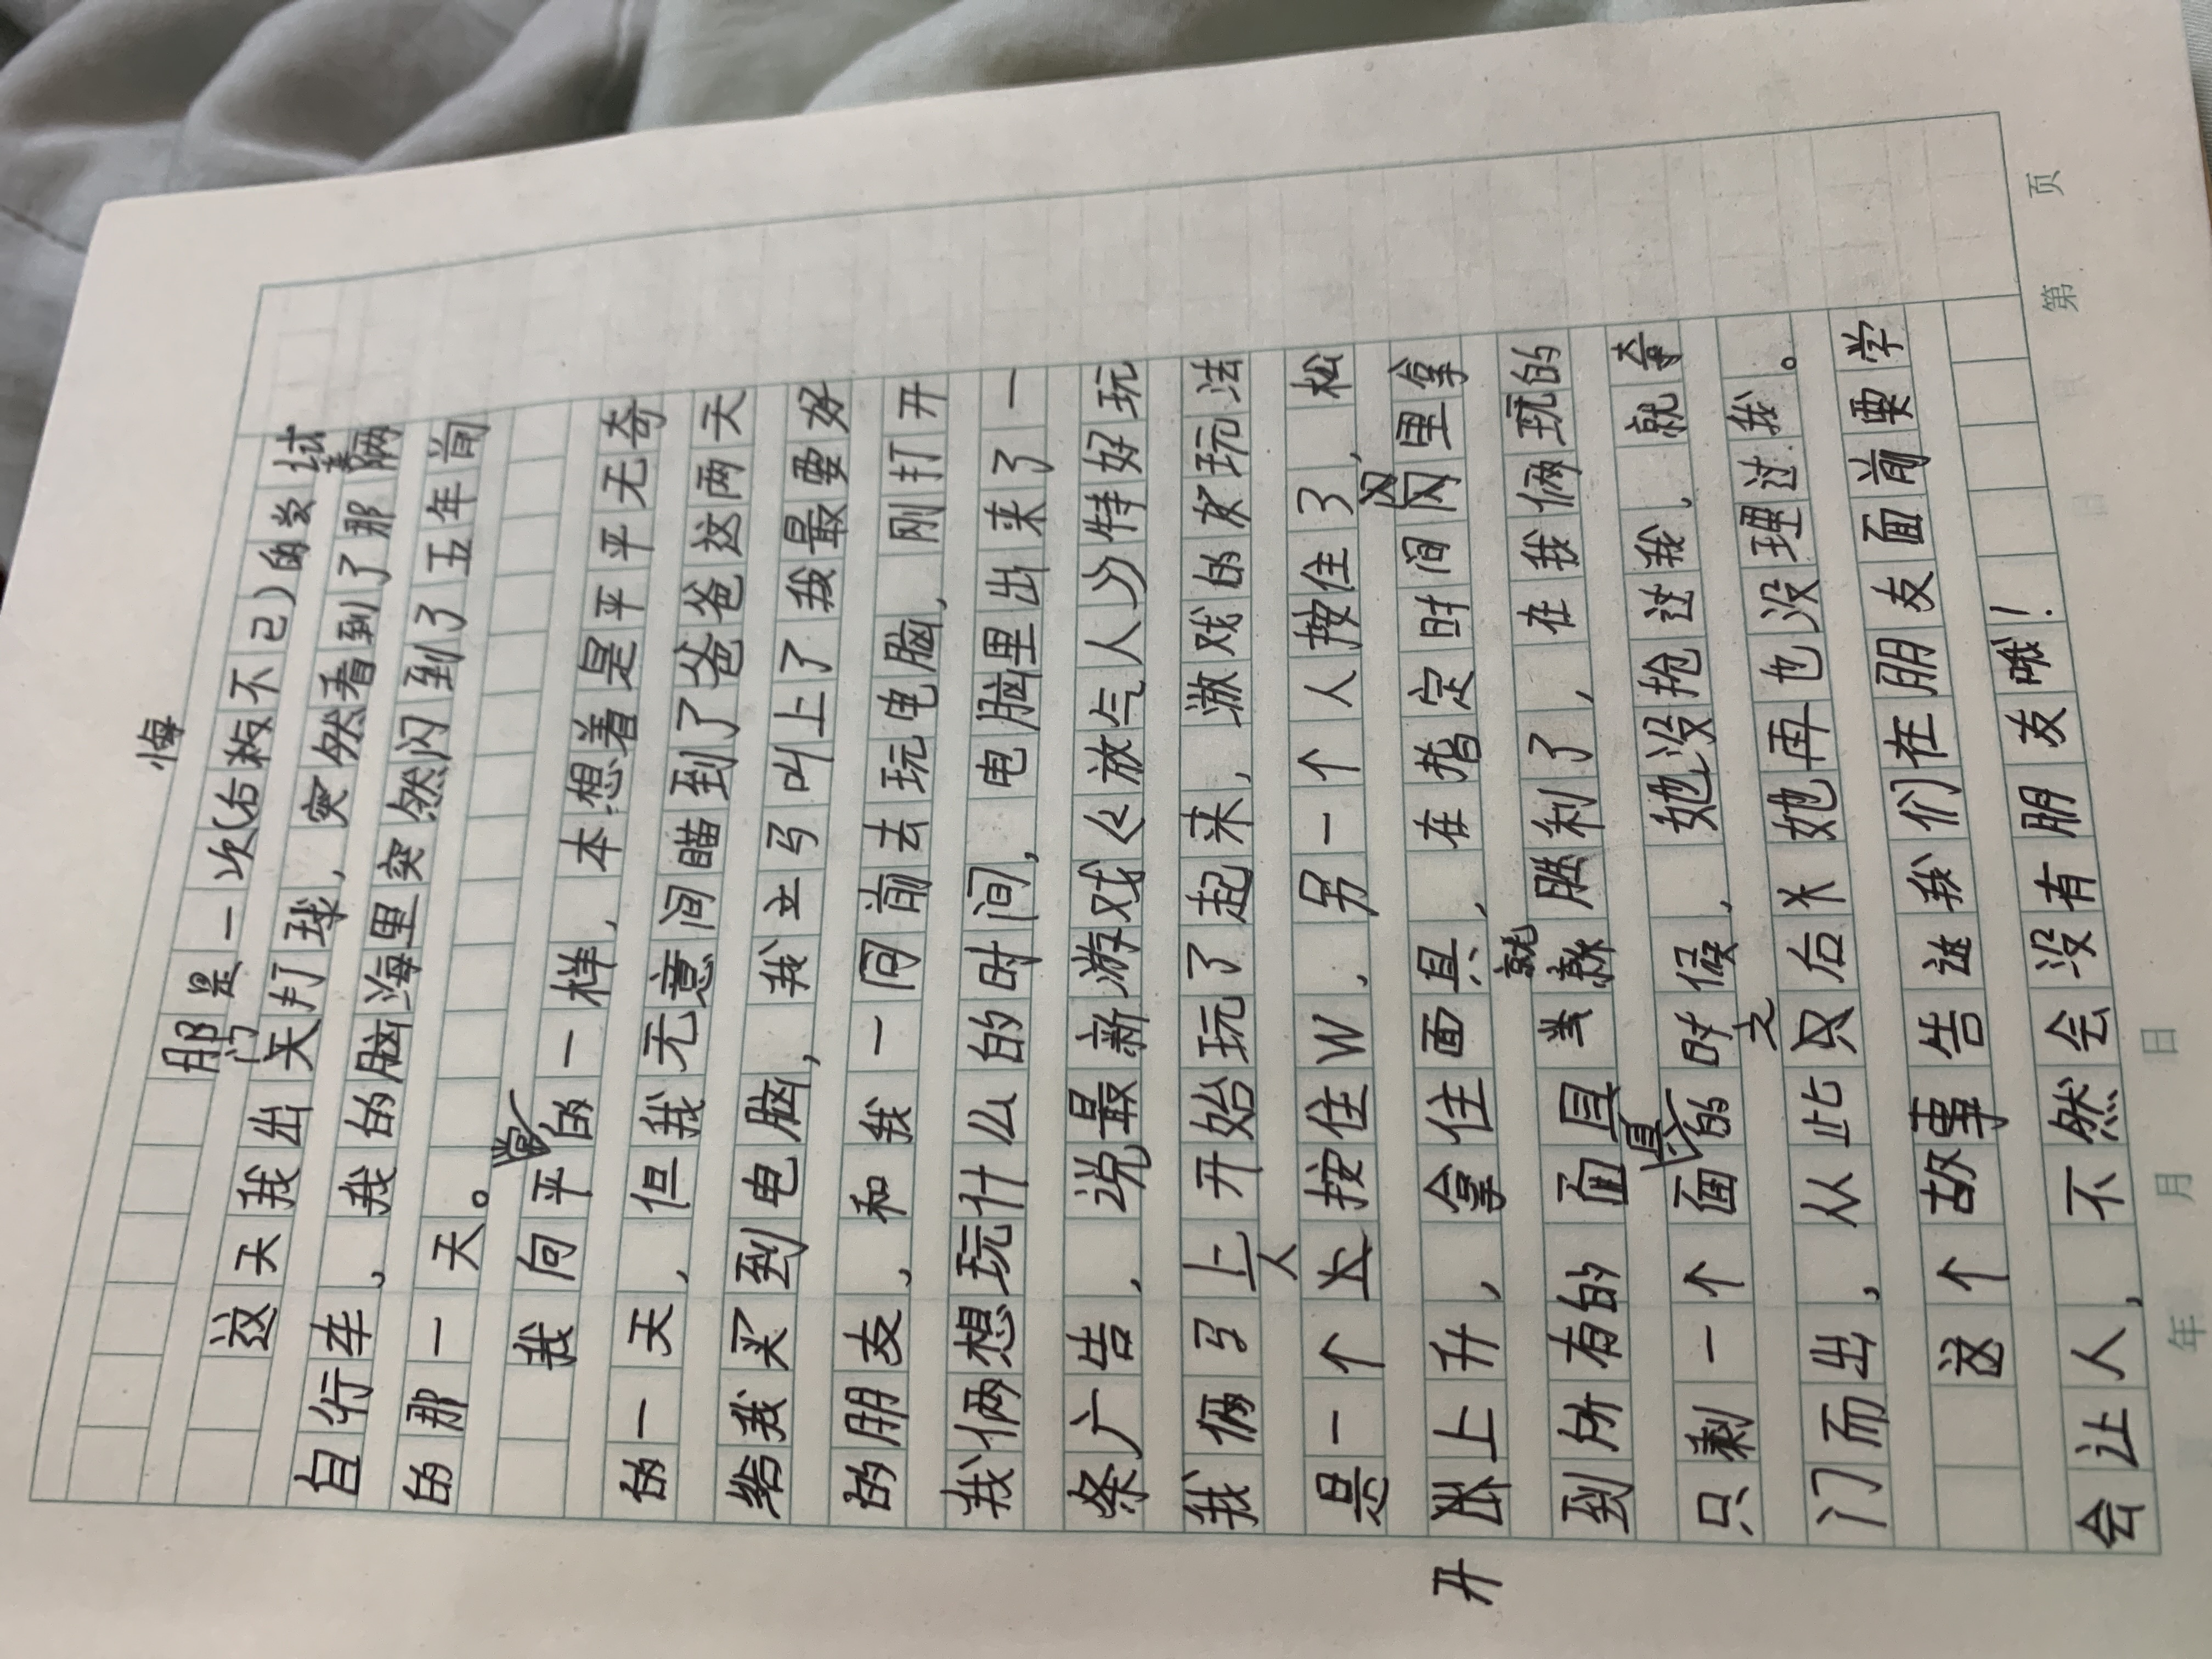 那是一次(右悔不己)的尝试
这天我出门打球,突然看到了那辆
自行车,我的脑海里突然闪到了五年前
的那一天。
我向平常的一样,本想着是平平无奇
的一天,但我无意间瞄到了爸爸这两天
给我买到电脑,我立马叫上了我最要好
的朋友,和我一同前去玩电脑,刚打开
我俩想玩什么的时间,电脑里出来了一
条广告,说最新游戏《放气人》特好玩
我俩马上开始玩了起来,游戏的玩法
是一个人按住W,另一个人按住了,松
开上升,拿住面具,在指定时间内里拿
到所有的面具就胜利了,在我俩玩的
只剩一个面具的时候,她没抢过我,就夺
门而出,从此之后她再也没理过我。
这个故事告诉我们在朋友面前要学
会让人,不然会没有朋友哦!
年 月 日 第 页